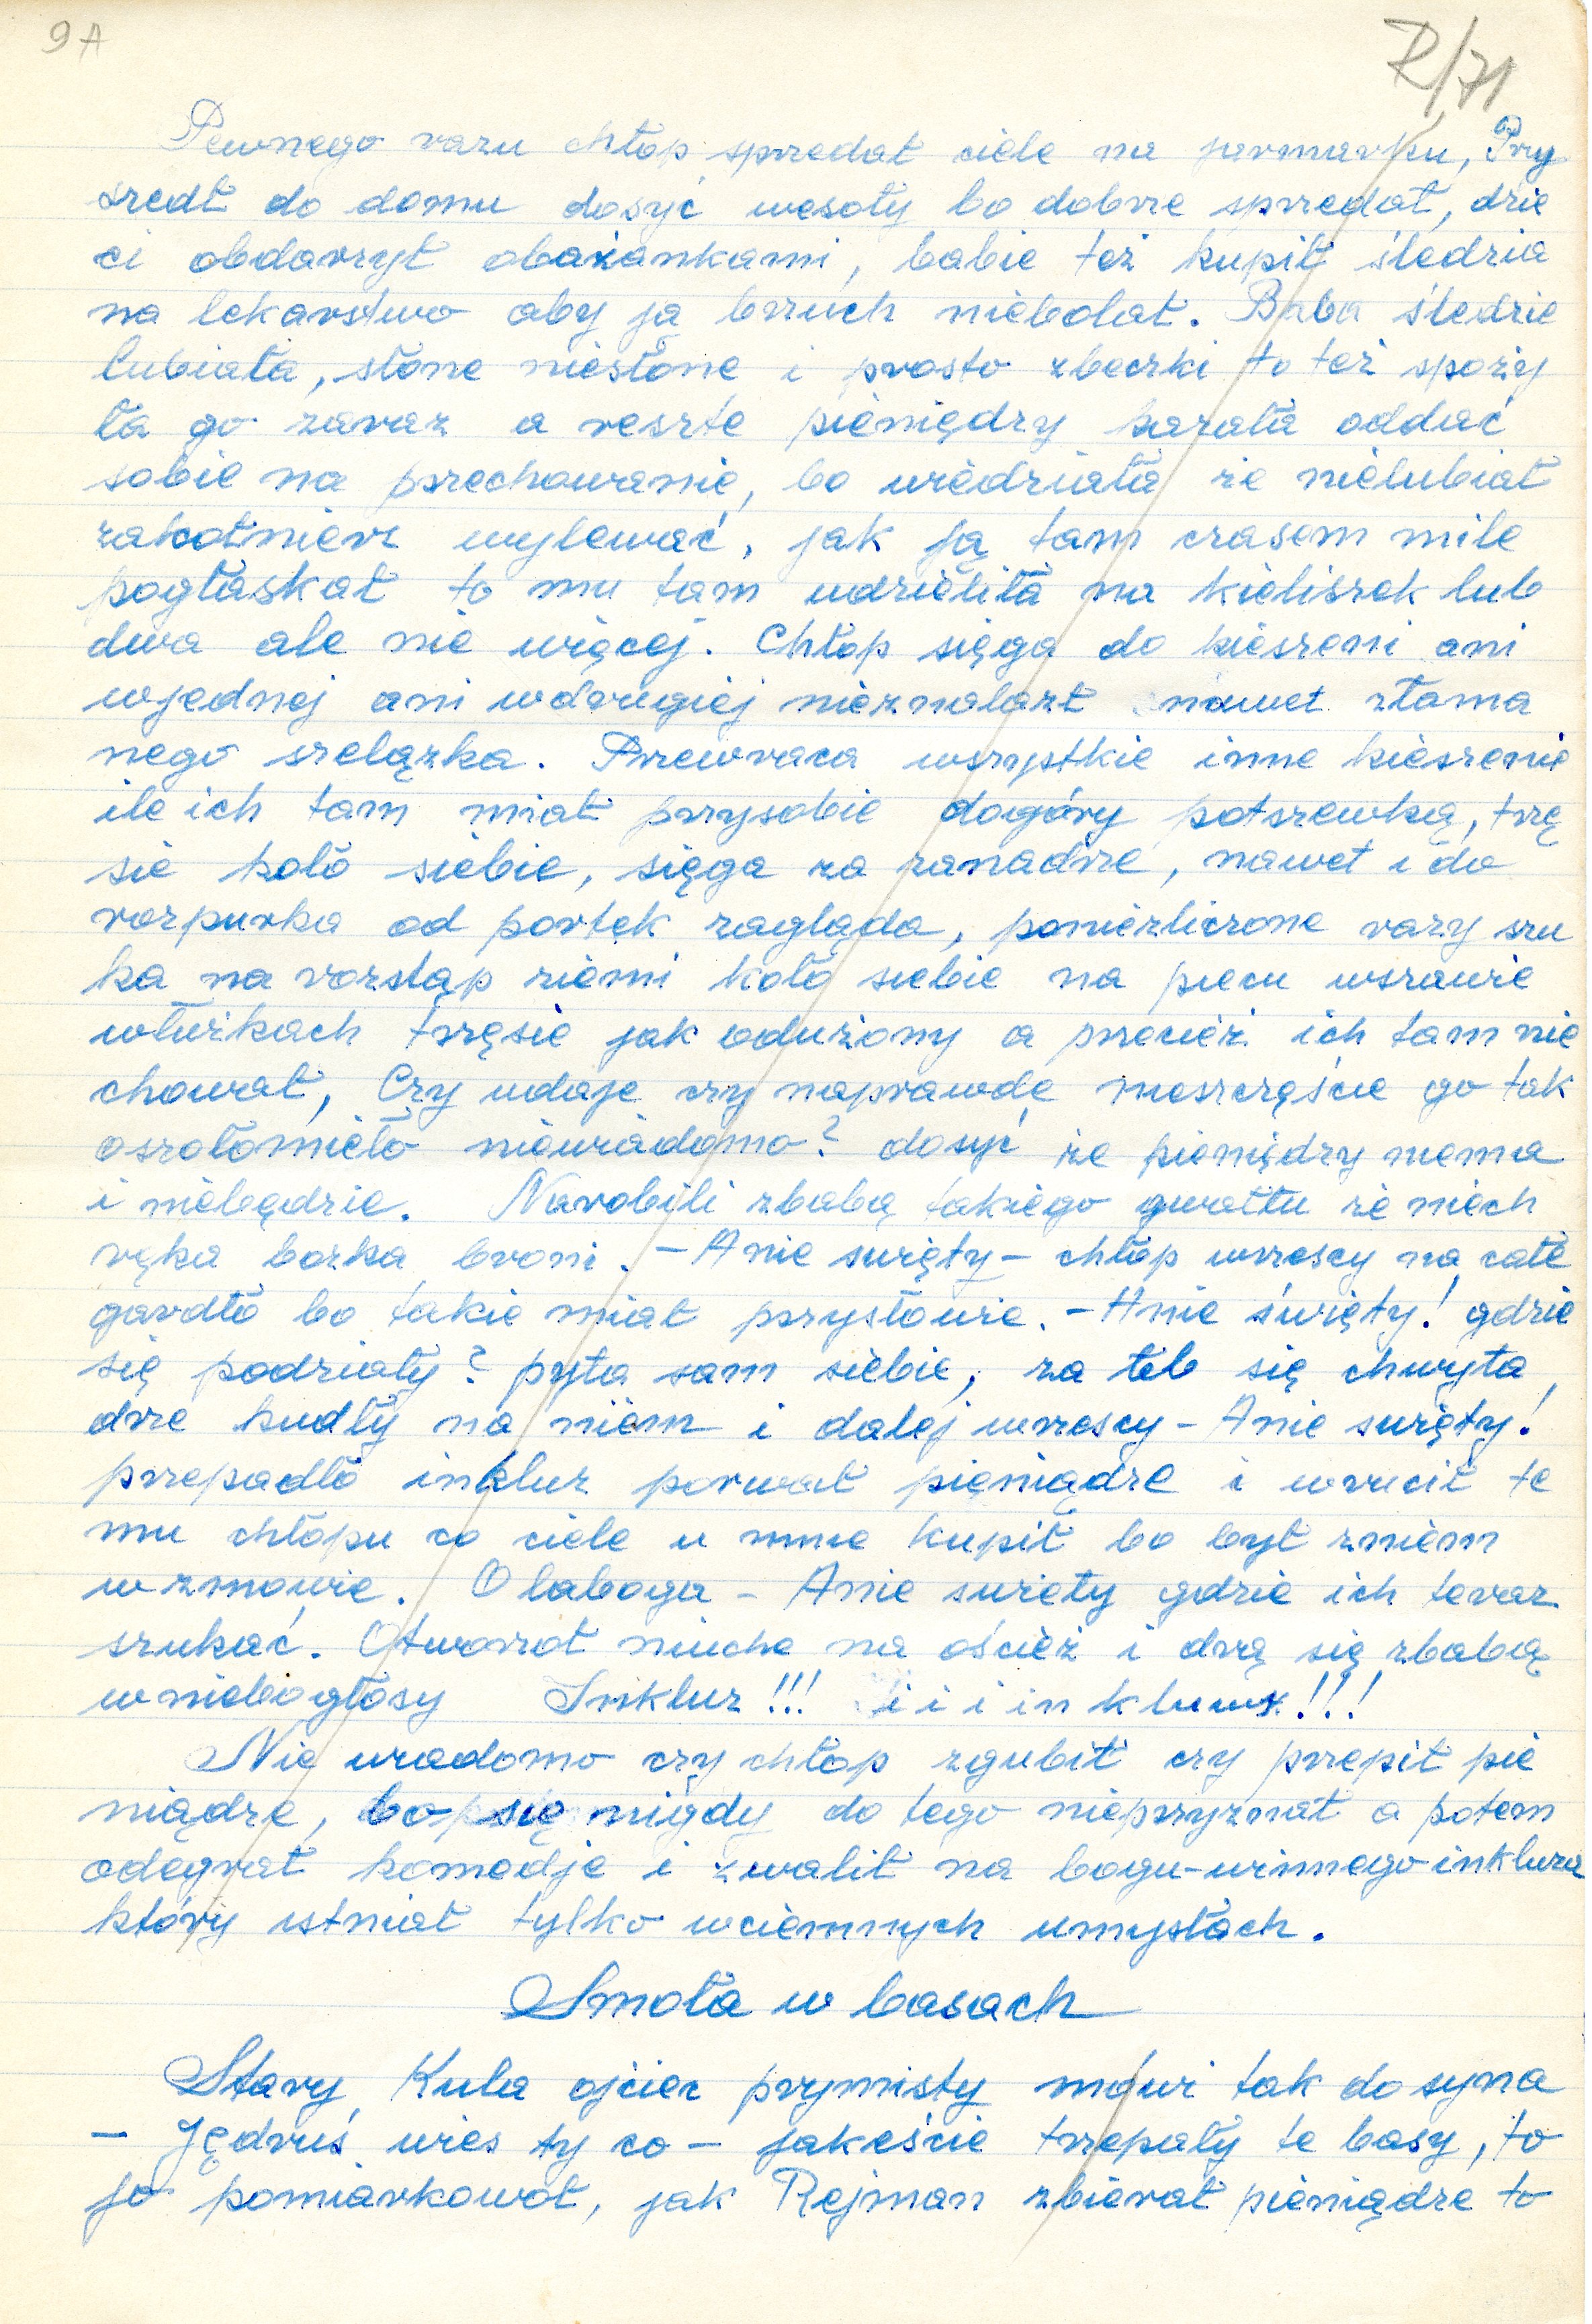 9A
R/71
Pewnego razu chłop sprzedał ciele na jarmarku, Przy
szedł do domu dosyć wesoły bo dobrze sprzedał, dzie
ci obdarzył obażankami, babie też kupił śledzia
na lekarstwo aby ją brzuch niebolał. Baba śledzie
lubiała, słone niesłone i prosto zbeczki to też spoży
ła go zaraz a reszte pieniędzy kazała oddać
sobie na przechowanie, bo wiedziała że nielubiał
zakołnierz wylewać, jak ją tam czasem mile
pogłaskał to mu tam udzieliła na kieliszek lub
dwa ale nie więcej. Chłop sięga do kieszeni ani
wjednej ani wdrugiej nieznalazł nawet złama
nego szelązka. Przewraca wszystkie inne kieszenie
ile ich tam miał przysobie dogóry potszewką, trzę
sie koło siebie, sięga za zanadrze, nawet i do
rozpurka od portek zagląda, poniezliczone razy szu
ka na rozstąp ziemi koło siebie na piecu wszawie
włużkach trzęsie jak odurzony a przecież ich tam nie
chował, Czy udaje czy naprawde nieszczęście go tak
oszołomieło niewiadomo? dosyć że pieniędzy niema
i niebędzie. Narobili zbabą takiego gwałtu że niech
ręka bozka broni. – Anie święty – chłop wrzescy na całe
gardło bo takie miał przysłowie. – Anie święty! gdzie
się podziały? pyta sam siebie, za łeb się chwyta,
drze kudły na niem i dalej wrzescy – Anie święty!
przepadło inkluz porwał pieniądze i wrucił te
mu chłopu co ciele u mnie kupił bo był zniem
w zmowie. O laboga – Anie święty gdzie ich teraz
szukać. Otworzoł niucha na oścież i drą się zbabą
wniebogłosy Inkluz!!! i i i in k luuz!!!
Nie wiadomo czy chłop zgubił czy przepił pie
niądze, bo się nigdy do tego nieprzyznał a potem
odegrał komedje i zwalił na bogu-winnego inkluza
który istniał tylko wciemnych umysłach.
Smoła w basach
Stary Kula ojciec prymisty mówi tak do syna
– Jędruś wies ty co – jakeście trzepały te basy, to
jo pomiarkowoł, jak Rejman zbierał pieniądze to